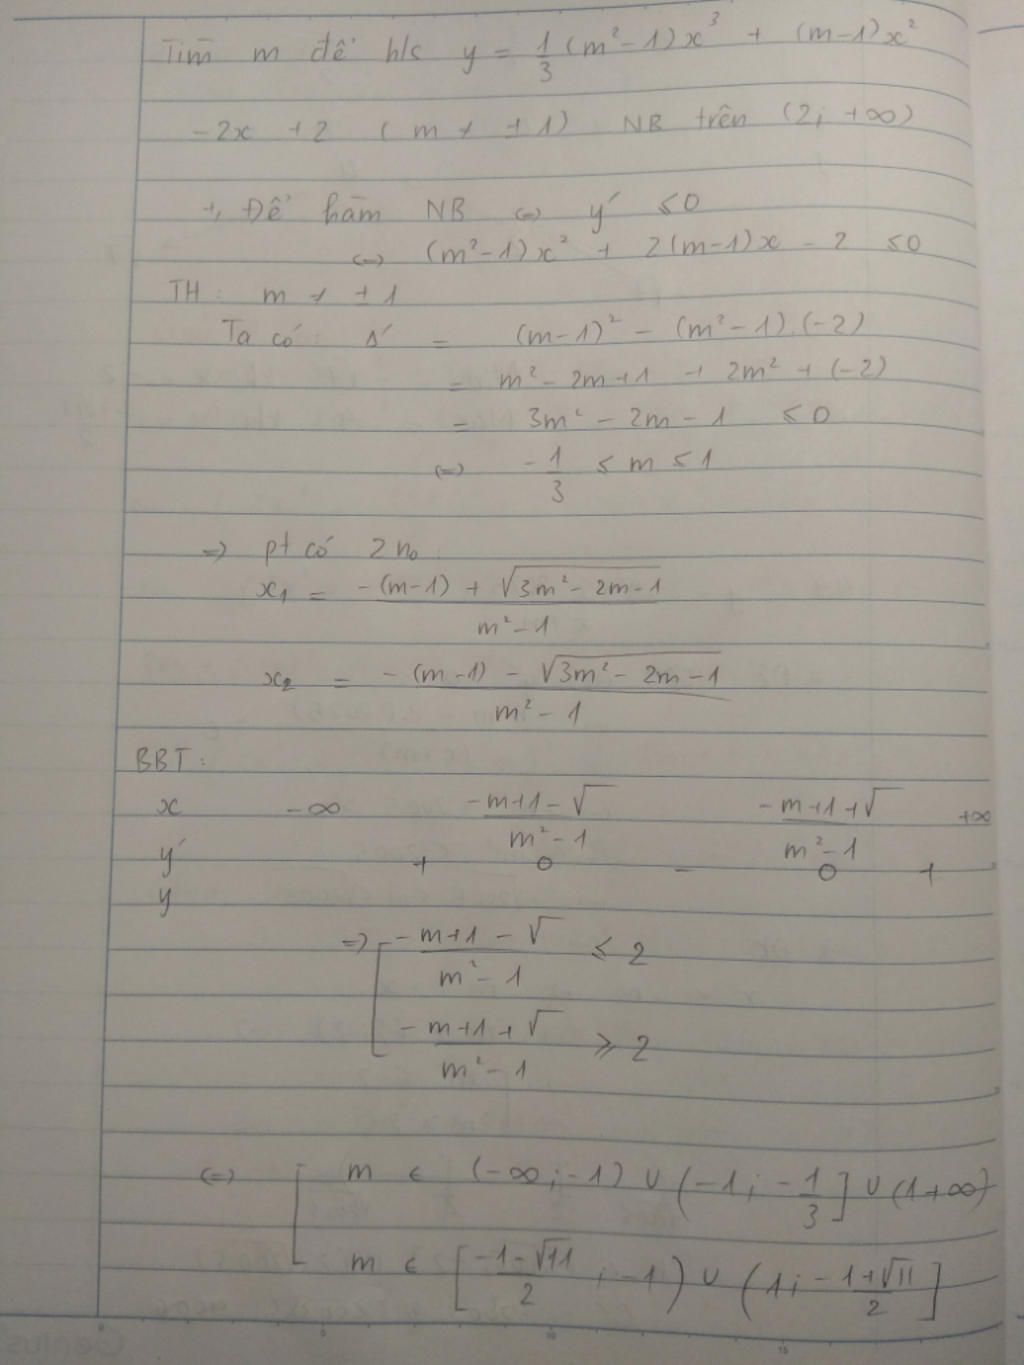 Tìm m để h/s y = 1/3 (m² - 1)x³ + (m-1)x²
-2x + 2 ( m ≠ ± 1) NB trên (2; +∞)
+, Để hàm NB ⇔ y' ≤ 0
⇔ (m² - 1)x² + 2(m-1)x - 2 ≤ 0
TH: m ≠ ± 1
Ta có: Δ' = (m-1)² - (m² - 1).(-2)
= m² - 2m + 1 + 2m² + (-2)
= 3m² - 2m - 1 ≤ 0
⇔ -1/3 ≤ m ≤ 1
⇒ pt có 2 n₀
x₁ = (-(m-1) + √(3m² - 2m - 1))/(m² - 1)
x₂ = (-(m-1) - √(3m² - 2m - 1))/(m² - 1)
BBT:
x -∞ (-m+1-√)/(m² - 1) (-m+1+√)/(m² - 1) +∞
y' + 0 - 0 +
y
⇒ [ (-m+1-√)/(m² - 1) ≤ 2
(-m+1+√)/(m² - 1) ≥ 2
⇔ [ m ∈ (-∞; -1) ∪ (-1; -1/3] ∪ (1 +∞)
m ∈ [(-1-√11)/2; -1) ∪ (1; (-1+√11)/2]